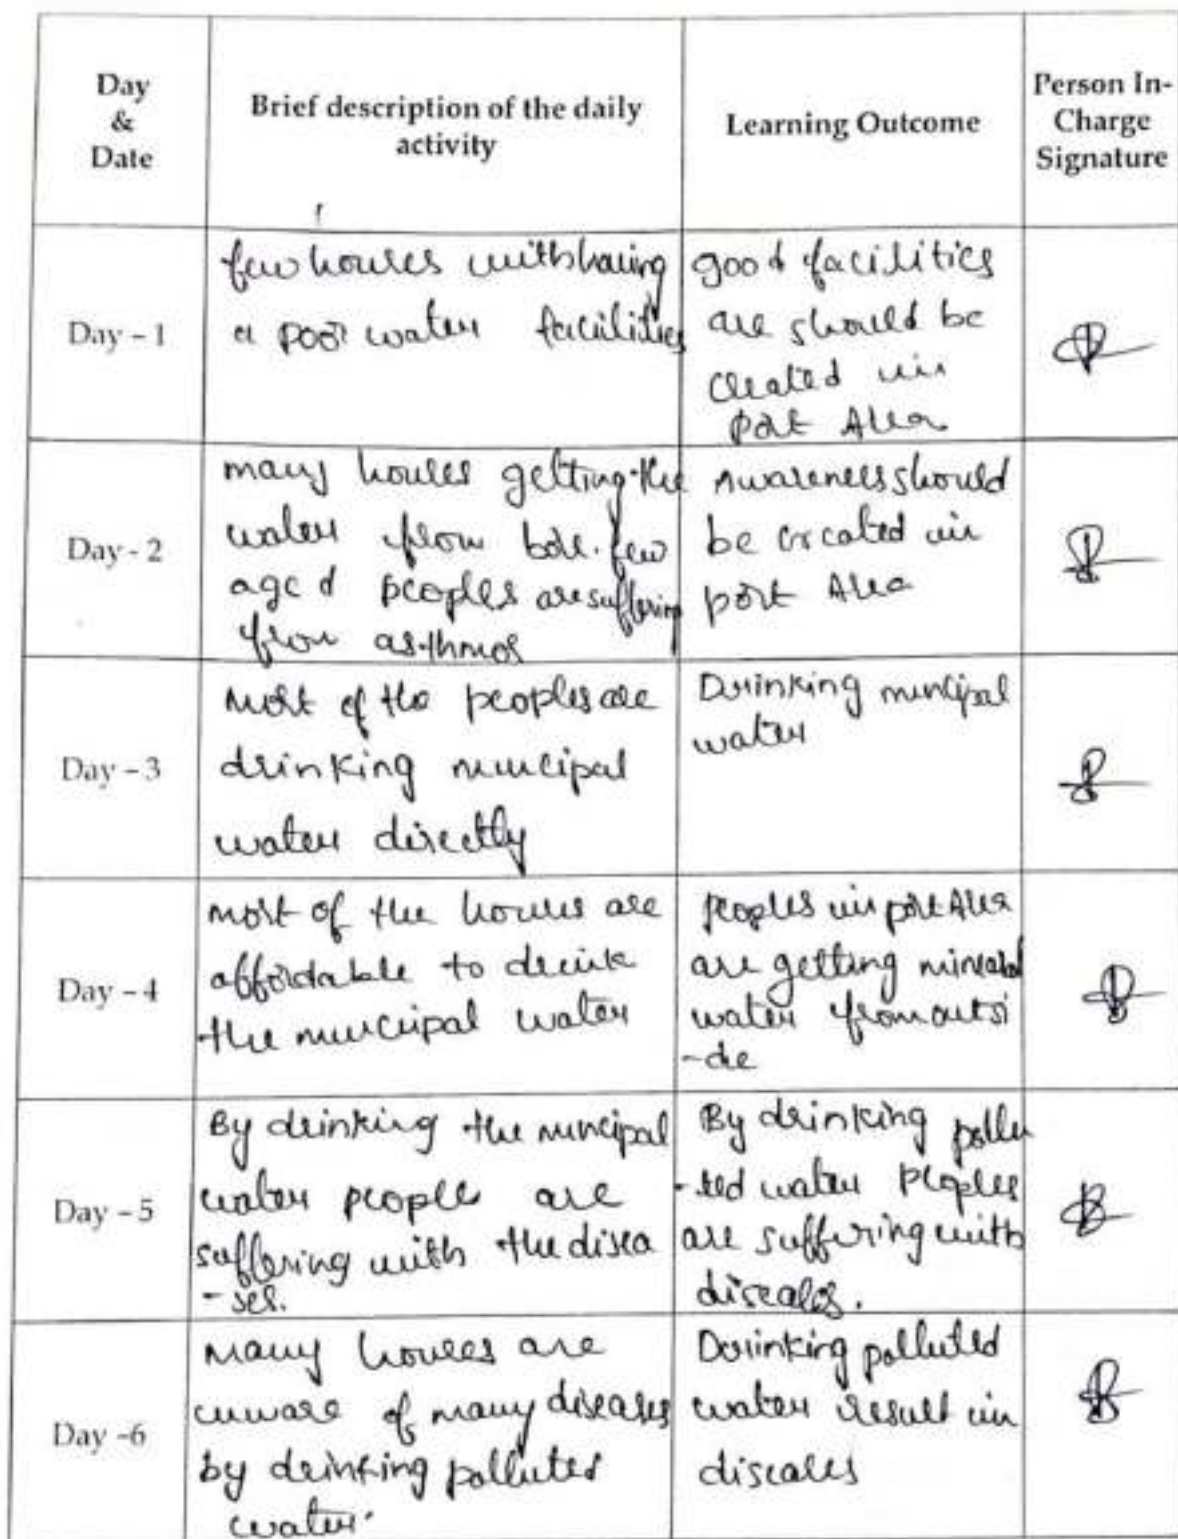 Day
&
Date
Brief description of the daily
activity
Learning Outcome
Person In-
Charge
Signature
Day - 1
few houses with having
a poor water facilities
good facilities
are should be
created in
port Area
Day - 2
many houses getting the
water from bore. few
aged peoples are suffering
from asthmas
Awareness should
be created in
port Area
Day - 3
Most of the peoples are
drinking muncipal
water directly
Drinking muncipal
water
Day - 4
most of the houses are
affordable to drink
the muncipal water
peoples in port Area
are getting mineral
water from outsi
-de
Day - 5
By drinking the muncipal
water peoples are
suffering with the disea
-ses.
By drinking pollu
-ted water peoples
are suffering with
diseases.
Day -6
Many houses are
unware of many diseases
by drinking polluted
water.
Drinking polluted
water result in
diseases